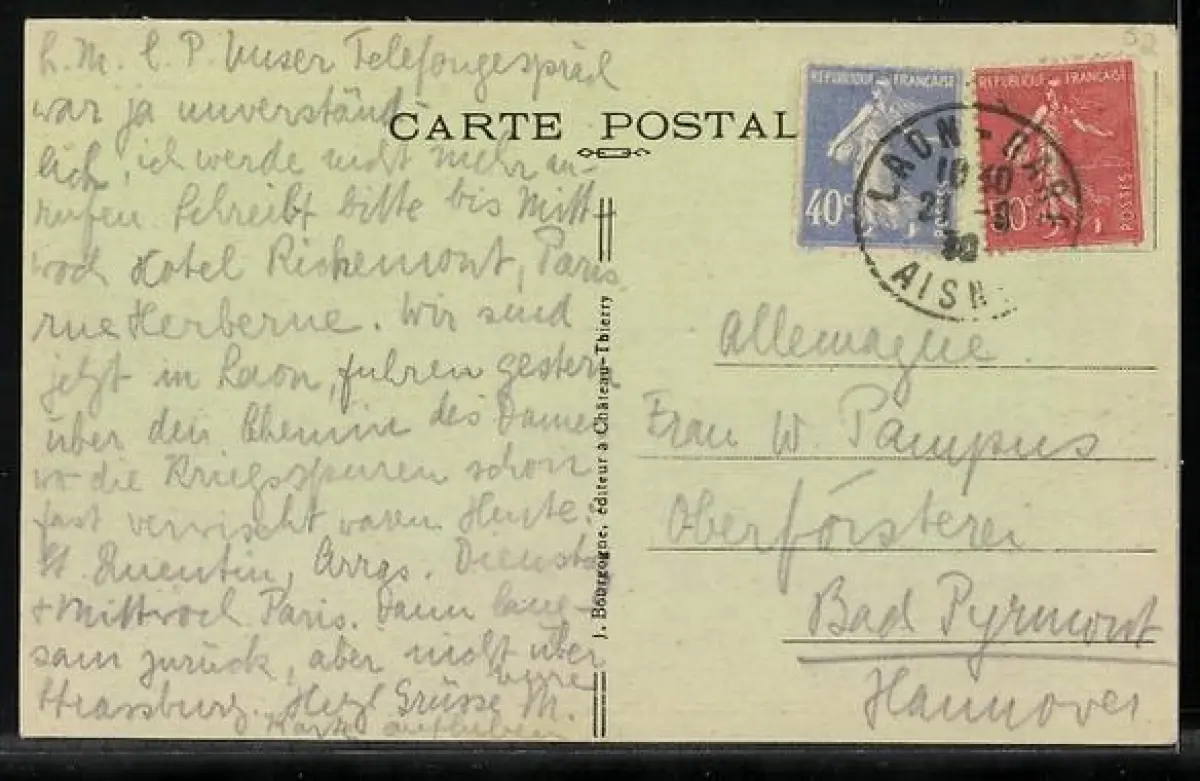 L. M. l. P. Unser Telefongespräch
war ja unverständ-
lich, ich werde nicht mehr an-
rufen. Schreibt bitte bis Mitt-
woch Hotel Richemont, Paris
rue Herberne. Wir sind
jetzt in Laon, fuhren gestern
über den Chemin des Dames
wo die Kriegsspuren schon
fast verwischt waren. Heute:
St. Quentin, Arras. Dienstag
+ Mittwoch Paris. Dann lang-
sam zurück, aber nicht über
Strassburg. Herzl Grüsse M.
Karte aufheben
CARTE POSTAL
J. Bourgogne, éditeur a Château-Thierry
52
REPUBLIQUE FRANÇAISE
40 c
POSTES
REPUBLIQUE FRANÇAISE
POSTES
LAON-GARE
10 40
30
AISN
Allemagne.
Frau W. Pampus
Oberförsterei
Bad Pyrmont
Hannover